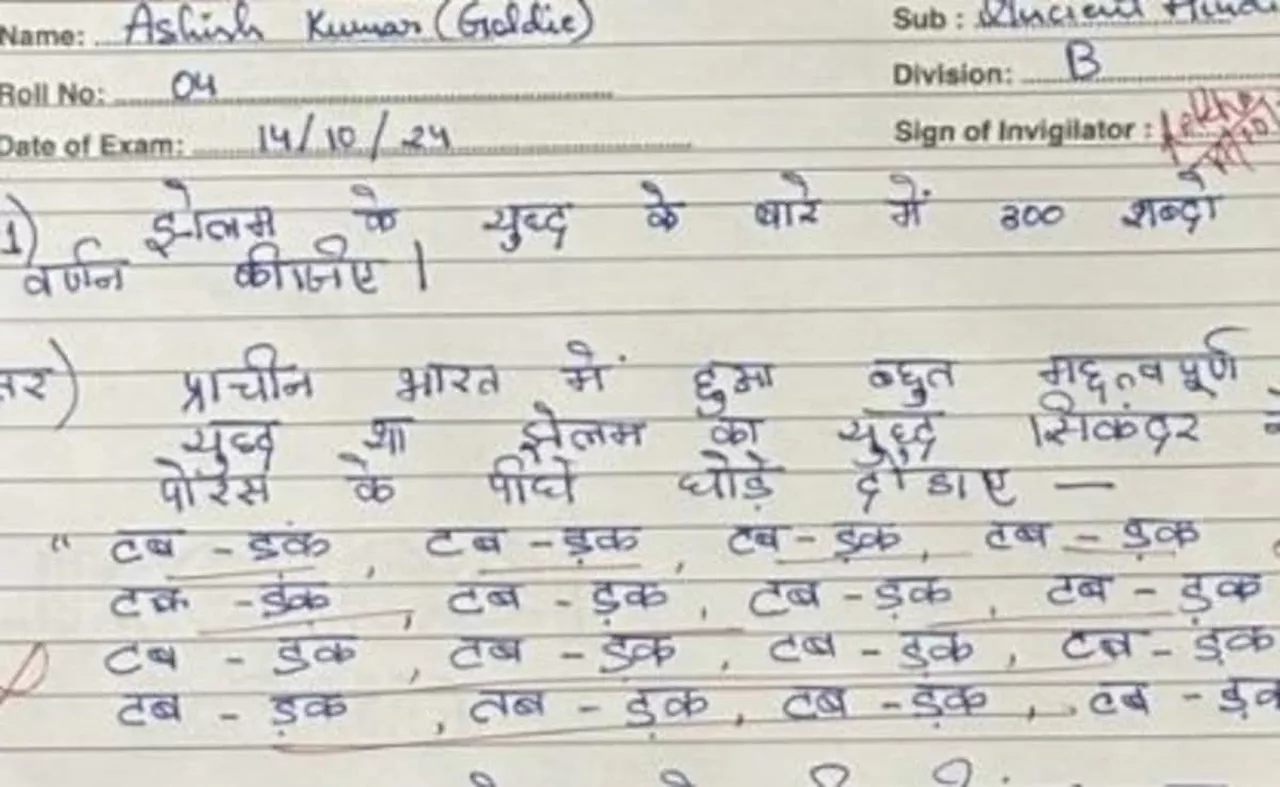 Name: Ashish Kumar (Goldie)
Sub : Ancient
Roll No: 04
Division: B
Date of Exam: 14/10/24
Sign of Invigilator :
1) झेलम के युध्द के बारे में 300 शब्दो
वर्णन कीजिए |
तर) प्राचीन भारत में हुआ बहुत महत्वपूर्ण
युध्द था झेलम का युध्द सिकंदर
पोरस के पीछे घोड़े दौडाए —
" टब - डक, टब - ड़क, टब - ड़क, टब - ड़क
टक - डक, टब - ड़क, टब - ड़क, टब - ड़क
टब - ड़क, टब - ड़क, टब - ड़क, टब - ड़क
टब - ड़क, तब - ड़क, टब - ड़क, टब - ड़क